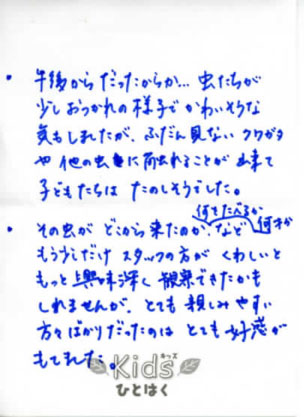 ・午後からだったからか… 虫たちが
少しおつかれの様子でかわいそうな
気もしましたが、ふだん見ない クワガタ
や 他の虫に 触れることが 出来て
子どもたちは たのしそうでした。
何をたべるか
何才か
・その虫が どこから来たのか、など
もう少しだけ スタッフの方が くわしいと
もっと興味深く 観察できたかも
しれませんが、とても 親しみやすい
方々ばかりだったのは とても好感が
もてました。
Kids
キッズ
ひとはく